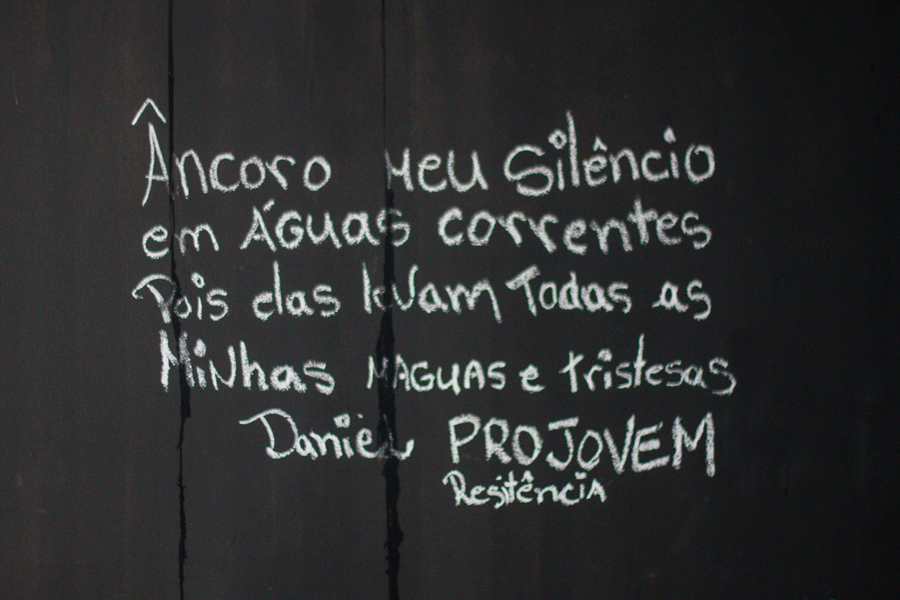 Âncoro meu Silêncio
em Águas correntes
Pois elas levam Todas as
Minhas MAGUAS e tristesas
Daniel PROJOVEM
Resitência